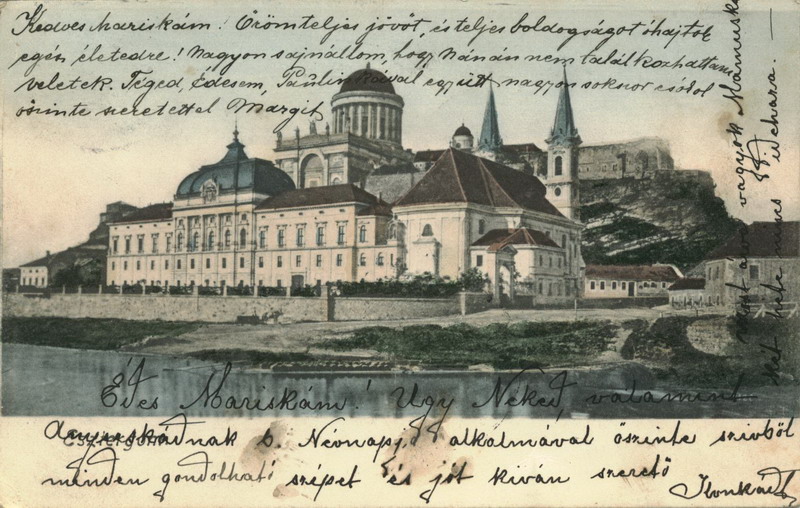 Kedves Mariskám! Örömteljes jövőt, és teljes boldogságot óhajtok
egész életedre! Nagyon sajnállom, hogy Nánán nem találkozhattam
veletek. Téged, Édesem, Paulin nénivel együtt nagyon sokszor csókol
őszinte szeretettel Margit
Édes Mariskám! Úgy Neked, valamint
Anyuskádnak b. Nevnapja alkalmával őszinte szivből
minden gondolható szépet és jót kiván szerető
Ilonkád
Esztergom
vagyok Mamuska
hét hete nincs idehaza.